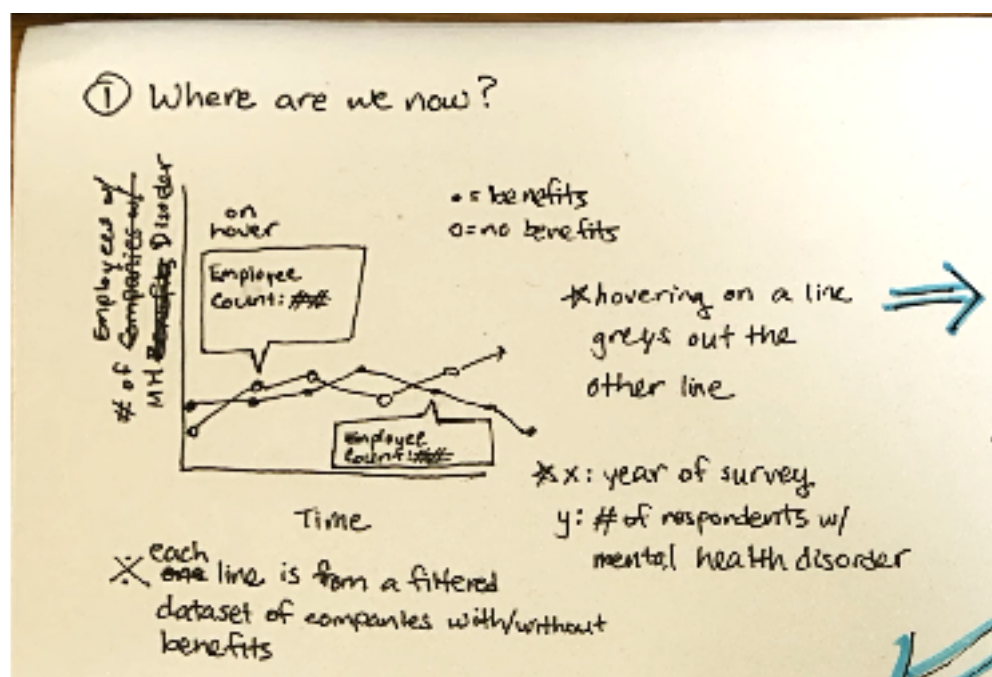 ① Where are we now?
Employees w/
# of Companies w/
MH Benefits Disorder
on
hover
Employee
Count: ##
• = benefits
o = no benefits
* hovering on a line
greys out the
other line
Employee
Count: ##
Time
* x: year of survey
y: # of respondents w/
mental health disorder
※ each
one line is from a filtered
dataset of companies with/without
benefits